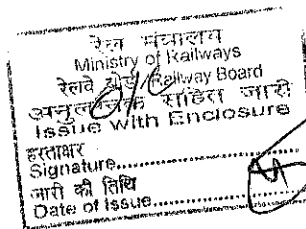 रेल मंत्रालय
Ministry of Railways
रेलवे बोर्ड Railway Board
सहित जारी
Issue with Enclosure
हस्ताक्षर
Signature....................
जारी की तिथि
Date of Issue....................